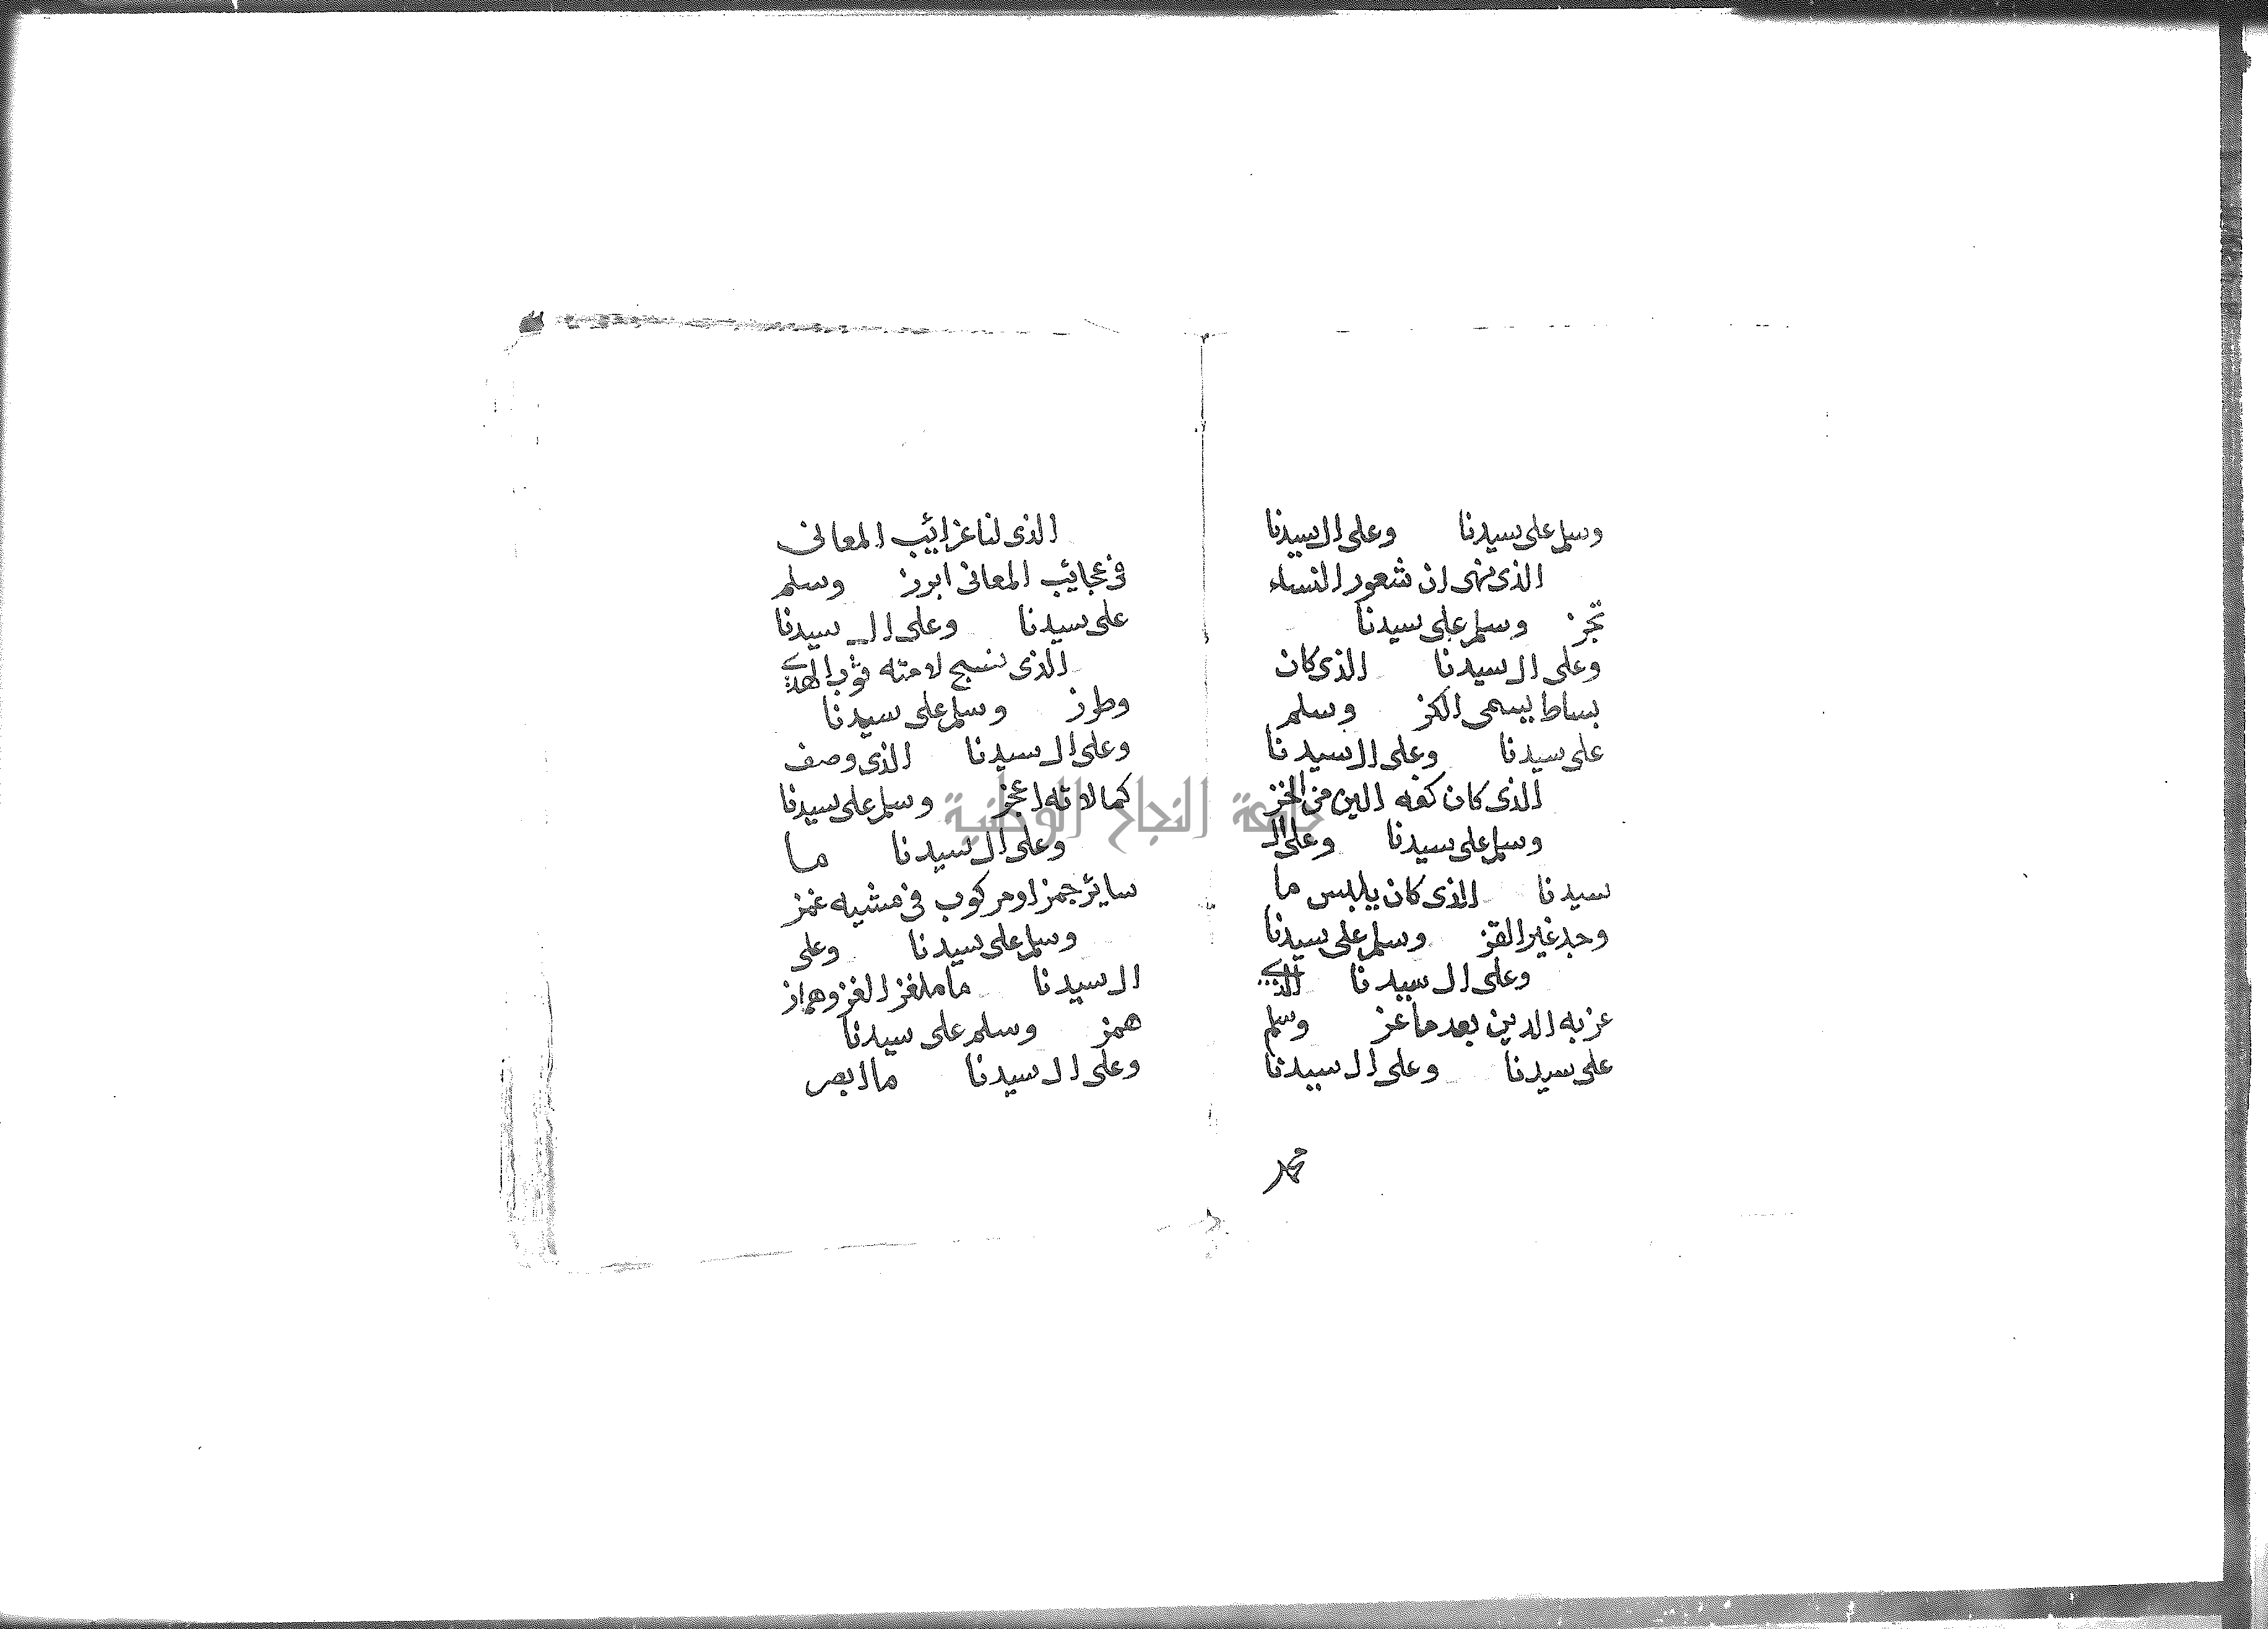 وسلم على سيدنا وعلى ال سيدنا
الذى نهى ان شعور النساء
تجز وسلم على سيدنا
وعلى ال سيدنا الذى كان
بساط يسمى الكز وسلم
على سيدنا وعلى ال سيدنا
الذى كان كفه الين من الخز
وسلم على سيدنا وعلى ال
سيدنا الذى كان يلبس ما
وجد غير القز وسلم على سيدنا
وعلى ال سيدنا الذى
عز به الدين بعد ما عز وسلم
على سيدنا وعلى ال سيدنا
محمد
الذى لنا غرائيب المعانى
فى عجائيب المعانى ابرز وسلم
على سيدنا وعلى ال سيدنا
الذى نسج لامته ثوب الهدى
وطرز وسلم على سيدنا
وعلى ال سيدنا الذى وصف
كمالاته اعجز وسلم على سيدنا
وعلى ال سيدنا ما
سائر جمز او مركوب فى مشيه غمز
وسلم على سيدنا وعلى
ال سيدنا ما ملغز الغز وهماز
همز وسلم على سيدنا
وعلى ال سيدنا ما ابصر
جامعة النجاح الوطنية